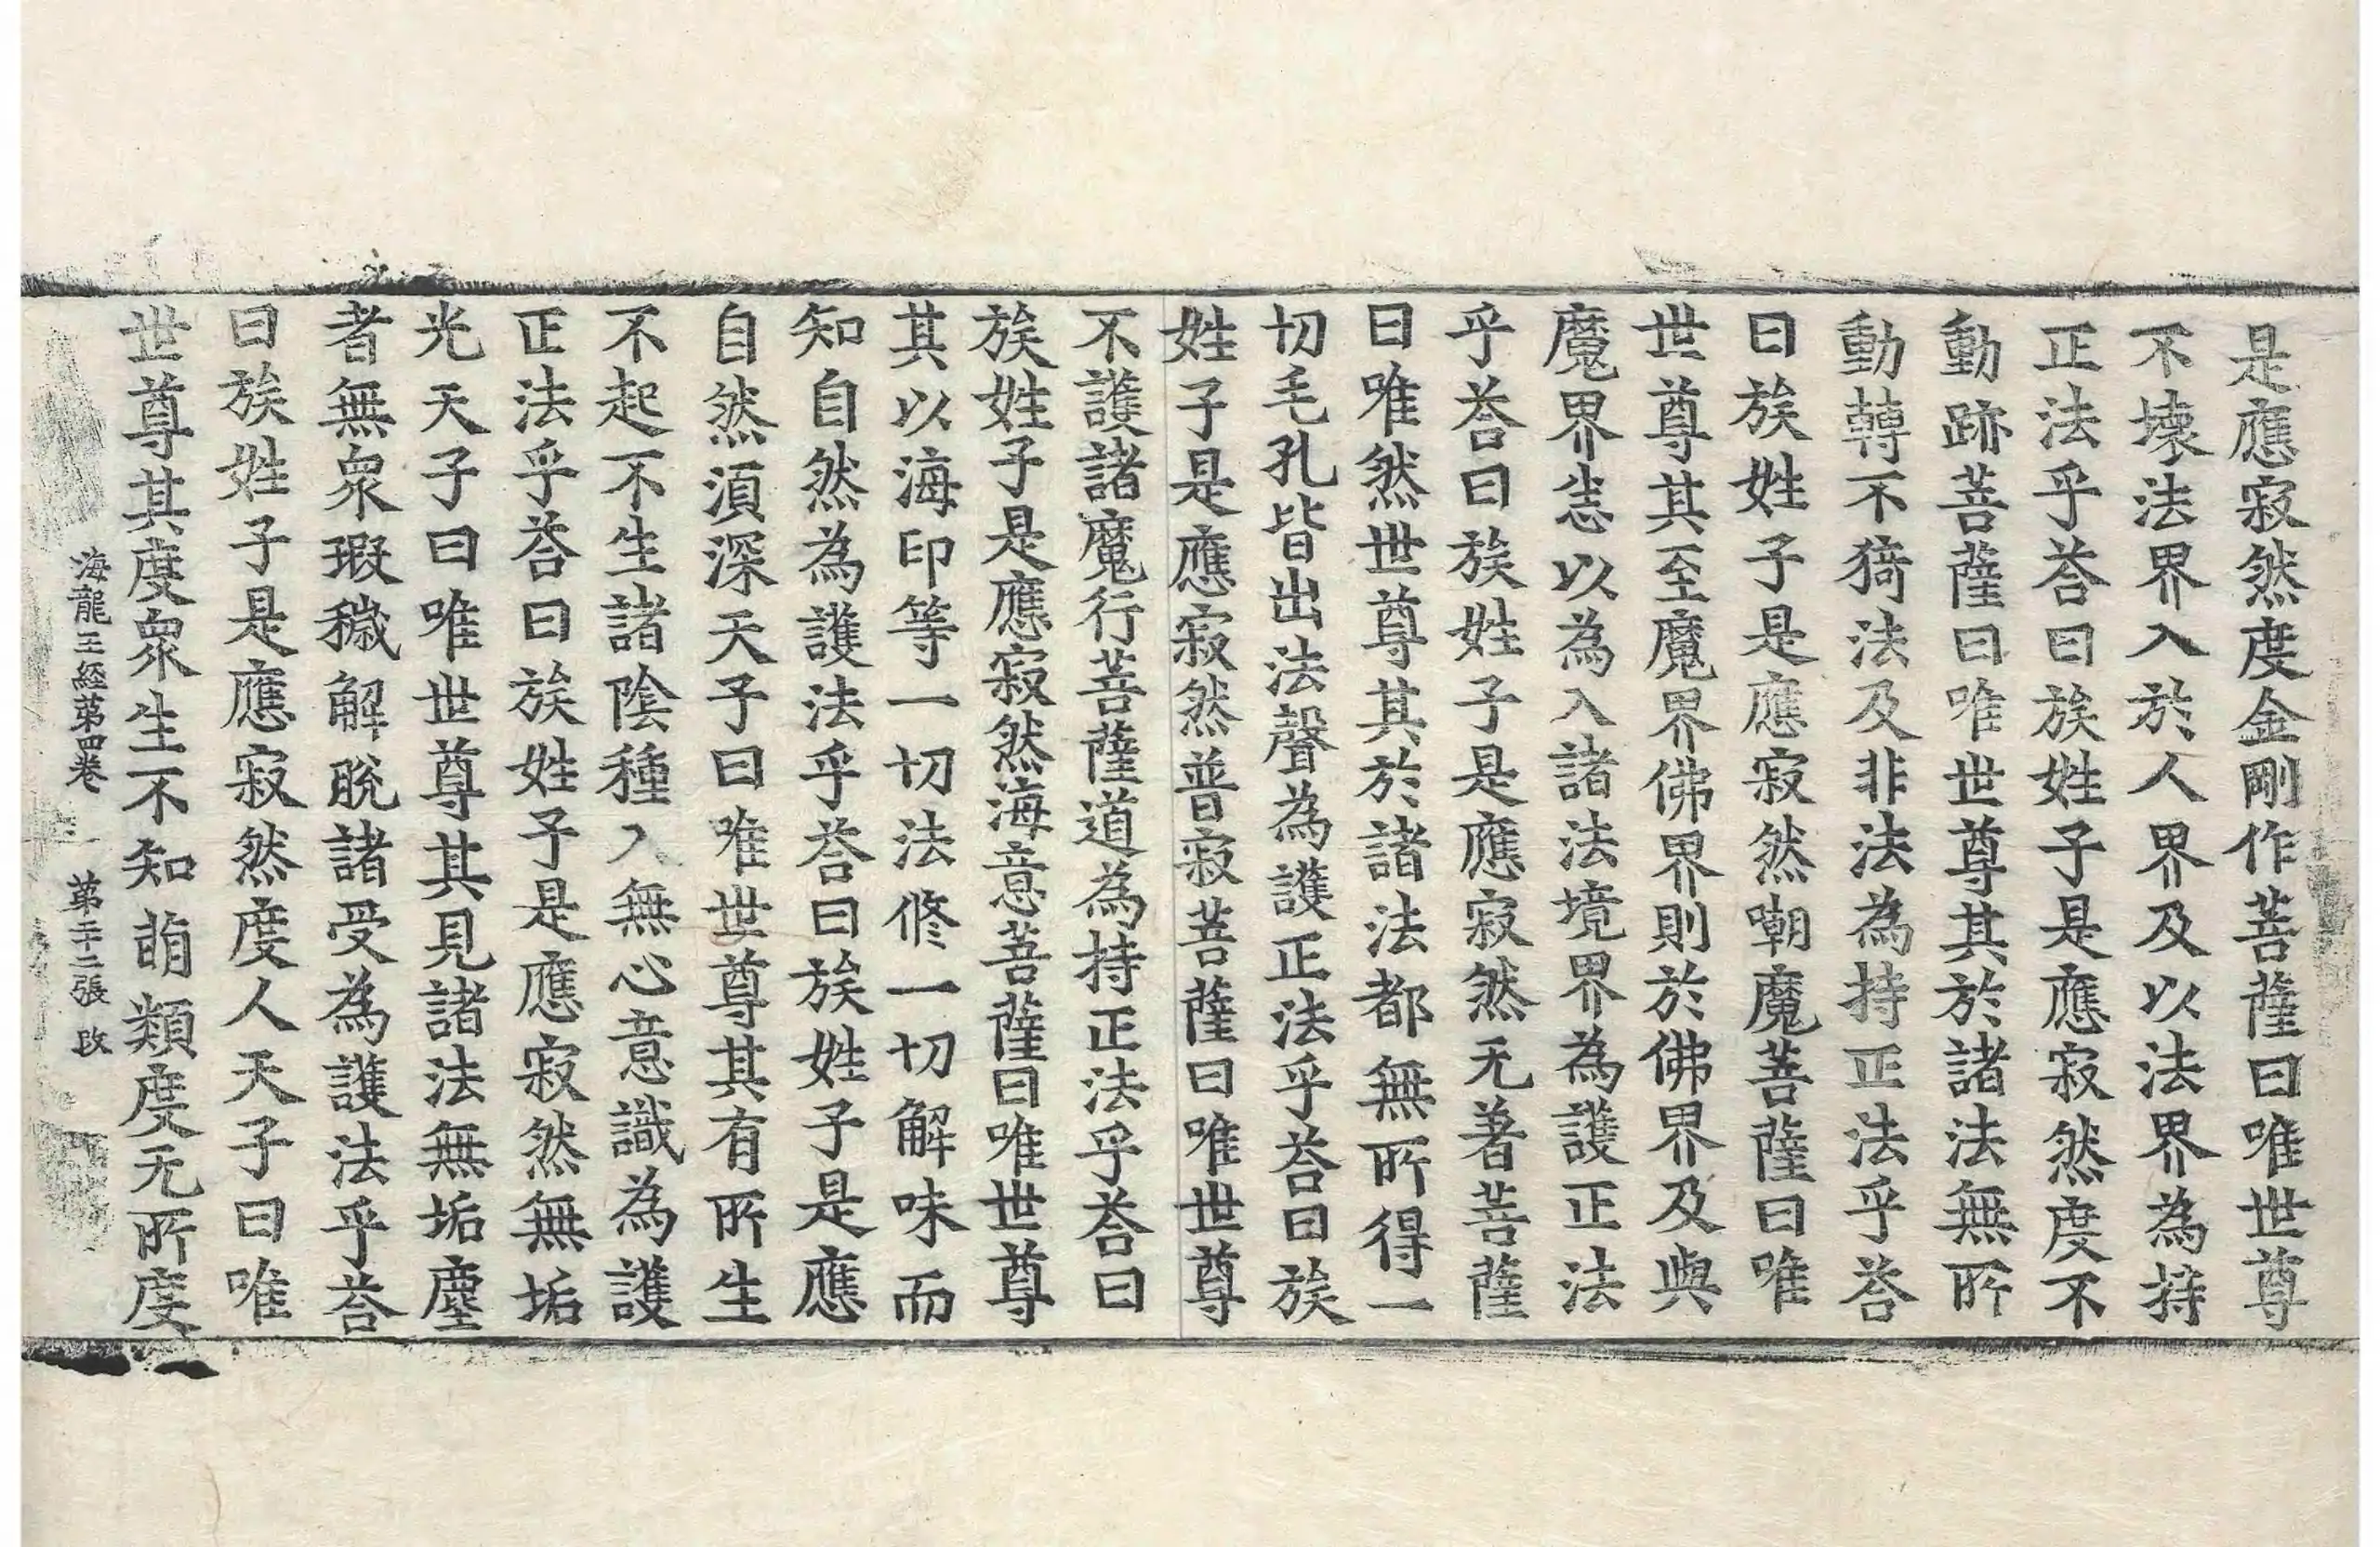 是應寂然度金剛作菩薩曰唯世尊
不壞法界入於人界及以法界為持
正法乎荅曰族姓子是應寂然度不
動跡菩薩曰唯世尊其於諸法無所
動轉不猗法及非法為持正法乎荅
曰族姓子是應寂然嘲魔菩薩曰唯
世尊其至魔界佛界則於佛界及與
魔界恙以為入諸法境界為護正法
乎荅曰族姓子是應寂然无著菩薩
曰唯然世尊其於諸法都無所得一
切毛孔皆出法聲為護正法乎荅曰族
姓子是應寂然普寂菩薩曰唯世尊
不護諸魔行菩薩道為持正法乎荅曰
族姓子是應寂然海意菩薩曰唯世尊
其以海印等一切法修一切解味而
知自然為護法乎荅曰族姓子是應
自然湏深天子曰唯世尊其有所生
不起不生諸陰種入無心意識為護
正法乎荅曰族姓子是應寂然無垢
光天子曰唯世尊其見諸法無垢塵
者無眾瑕穢解脫諸受為護法乎荅
曰族姓子是應寂然度人天子曰唯
世尊其度眾生不知萠類度无所度
海龍王經第四卷 第二十二張 改